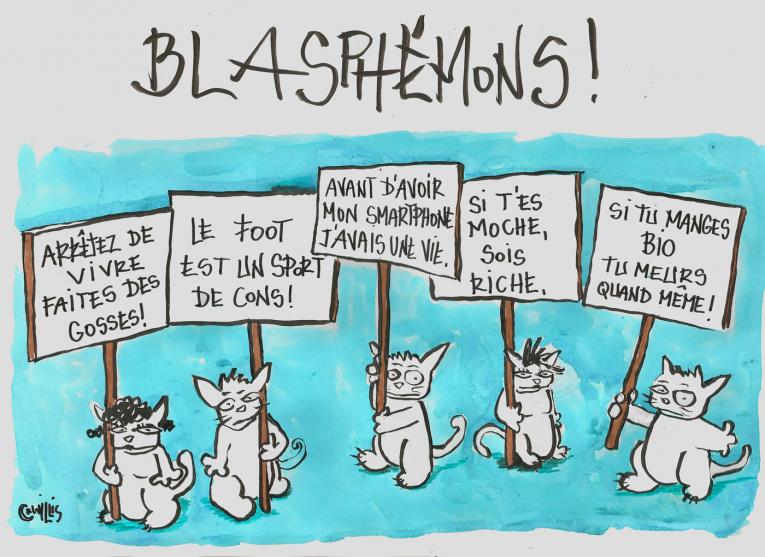 BLASPHÉMONS!
ARRÊTEZ DE
VIVRE
FAITES DES
GOSSES!
LE FOOT
EST UN SPORT
DE CONS!
AVANT D'AVOIR
MON SMARTPHONE
J'AVAIS UNE VIE.
SI T'ES
MOCHE,
SOIS
RICHE.
SI TU MANGES
BIO
TU MEURS
QUAND MÊME!